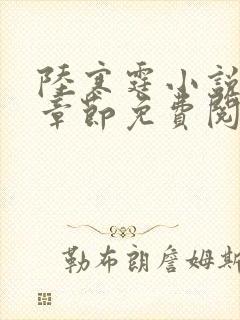 陸寒霆小說
章節免費閱
勒布朗詹姆斯